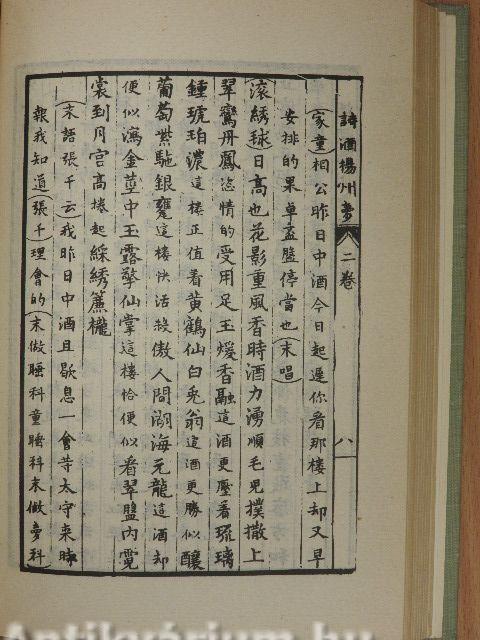 詩酒揚州夢 二卷 八
(家童)相公昨日中酒今日起遲你看那樓上却又早
安排的果卓盃盤停當也(末唱)
(滾綉球)日高也花影重風香時酒力湧順毛兒撲撒上
翠鸞丹鳳恣情的受用足玉煖香融這酒更壓着琉璃
鍾琥珀濃這樓正值着黃鶴仙白兎翁這酒更勝似釀
葡萄紫駞銀甕這樓快活殺傲人間湖海元龍這酒却
便似瀉金莖中玉露擎仙掌這樓恰便似看翠盤內霓
裳到月宮高捲起綵綉簾櫳
(末語張千云)我昨日中酒且歇息一會等太守來時
報我知道(張千)理會的(末做睡科童睡科末做夢科)
Antikvárium.hu